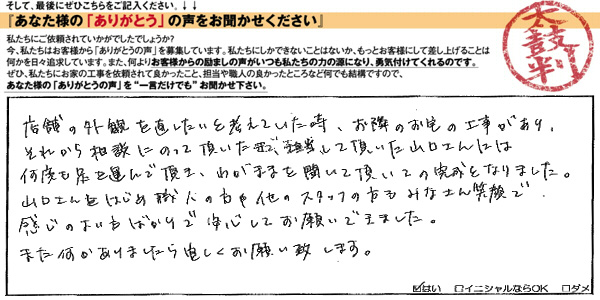 そして、最後にぜひこちらをご記入ください。↓↓
『あなた様の「ありがとう」の声をお聞かせください』
私たちにご依頼されていかがでしたでしょうか?
今、私たちはお客様から「ありがとうの声」を募集しています。私たちにしかできないことはないか、もっとお客様にして差し上げることは
何かを日々追求しています。また、何よりお客様からの励ましの声がいつも私たちの力の源になり、勇気付けてくれるのです。
ぜひ、私たちにお家の工事を依頼されて良かったこと、担当や職人の良かったところなど何でも結構ですので、
あなた様の「ありがとうの声」を“一言だけでも”お聞かせ下さい。
太鼓判
店舗の外観を直したいと考えていた時、お隣のお宅の工事があり、
それから相談にのって頂いた 担当して頂いた山口さんには
何度も足を運んで頂き、わがままを聞いて頂いての完成となりました。
山口さんをはじめ職人の方や他のスタッフの方もみなさん笑顔で
感じのよい方ばかりで安心してお願いできました。
また何かありましたら宜しくお願い致します。
☑はい □イニシャルならOK □ダメ